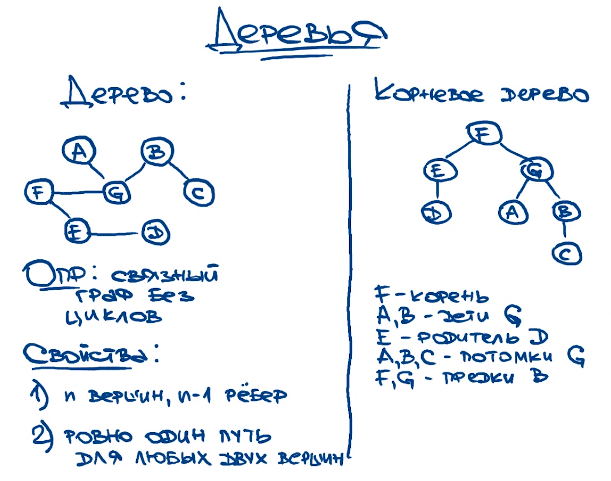 Деревья
Дерево:
A
B
F
G
C
E
D
Опр: связный
граф без
циклов
Свойства:
1) n вершин, n-1 рёбер
2) ровно один путь
для любых двух вершин
Корневое дерево
F
E
G
D
A
B
C
F - корень
A,B - дети G
E - родитель D
A,B,C - потомки G
F,G - предки B